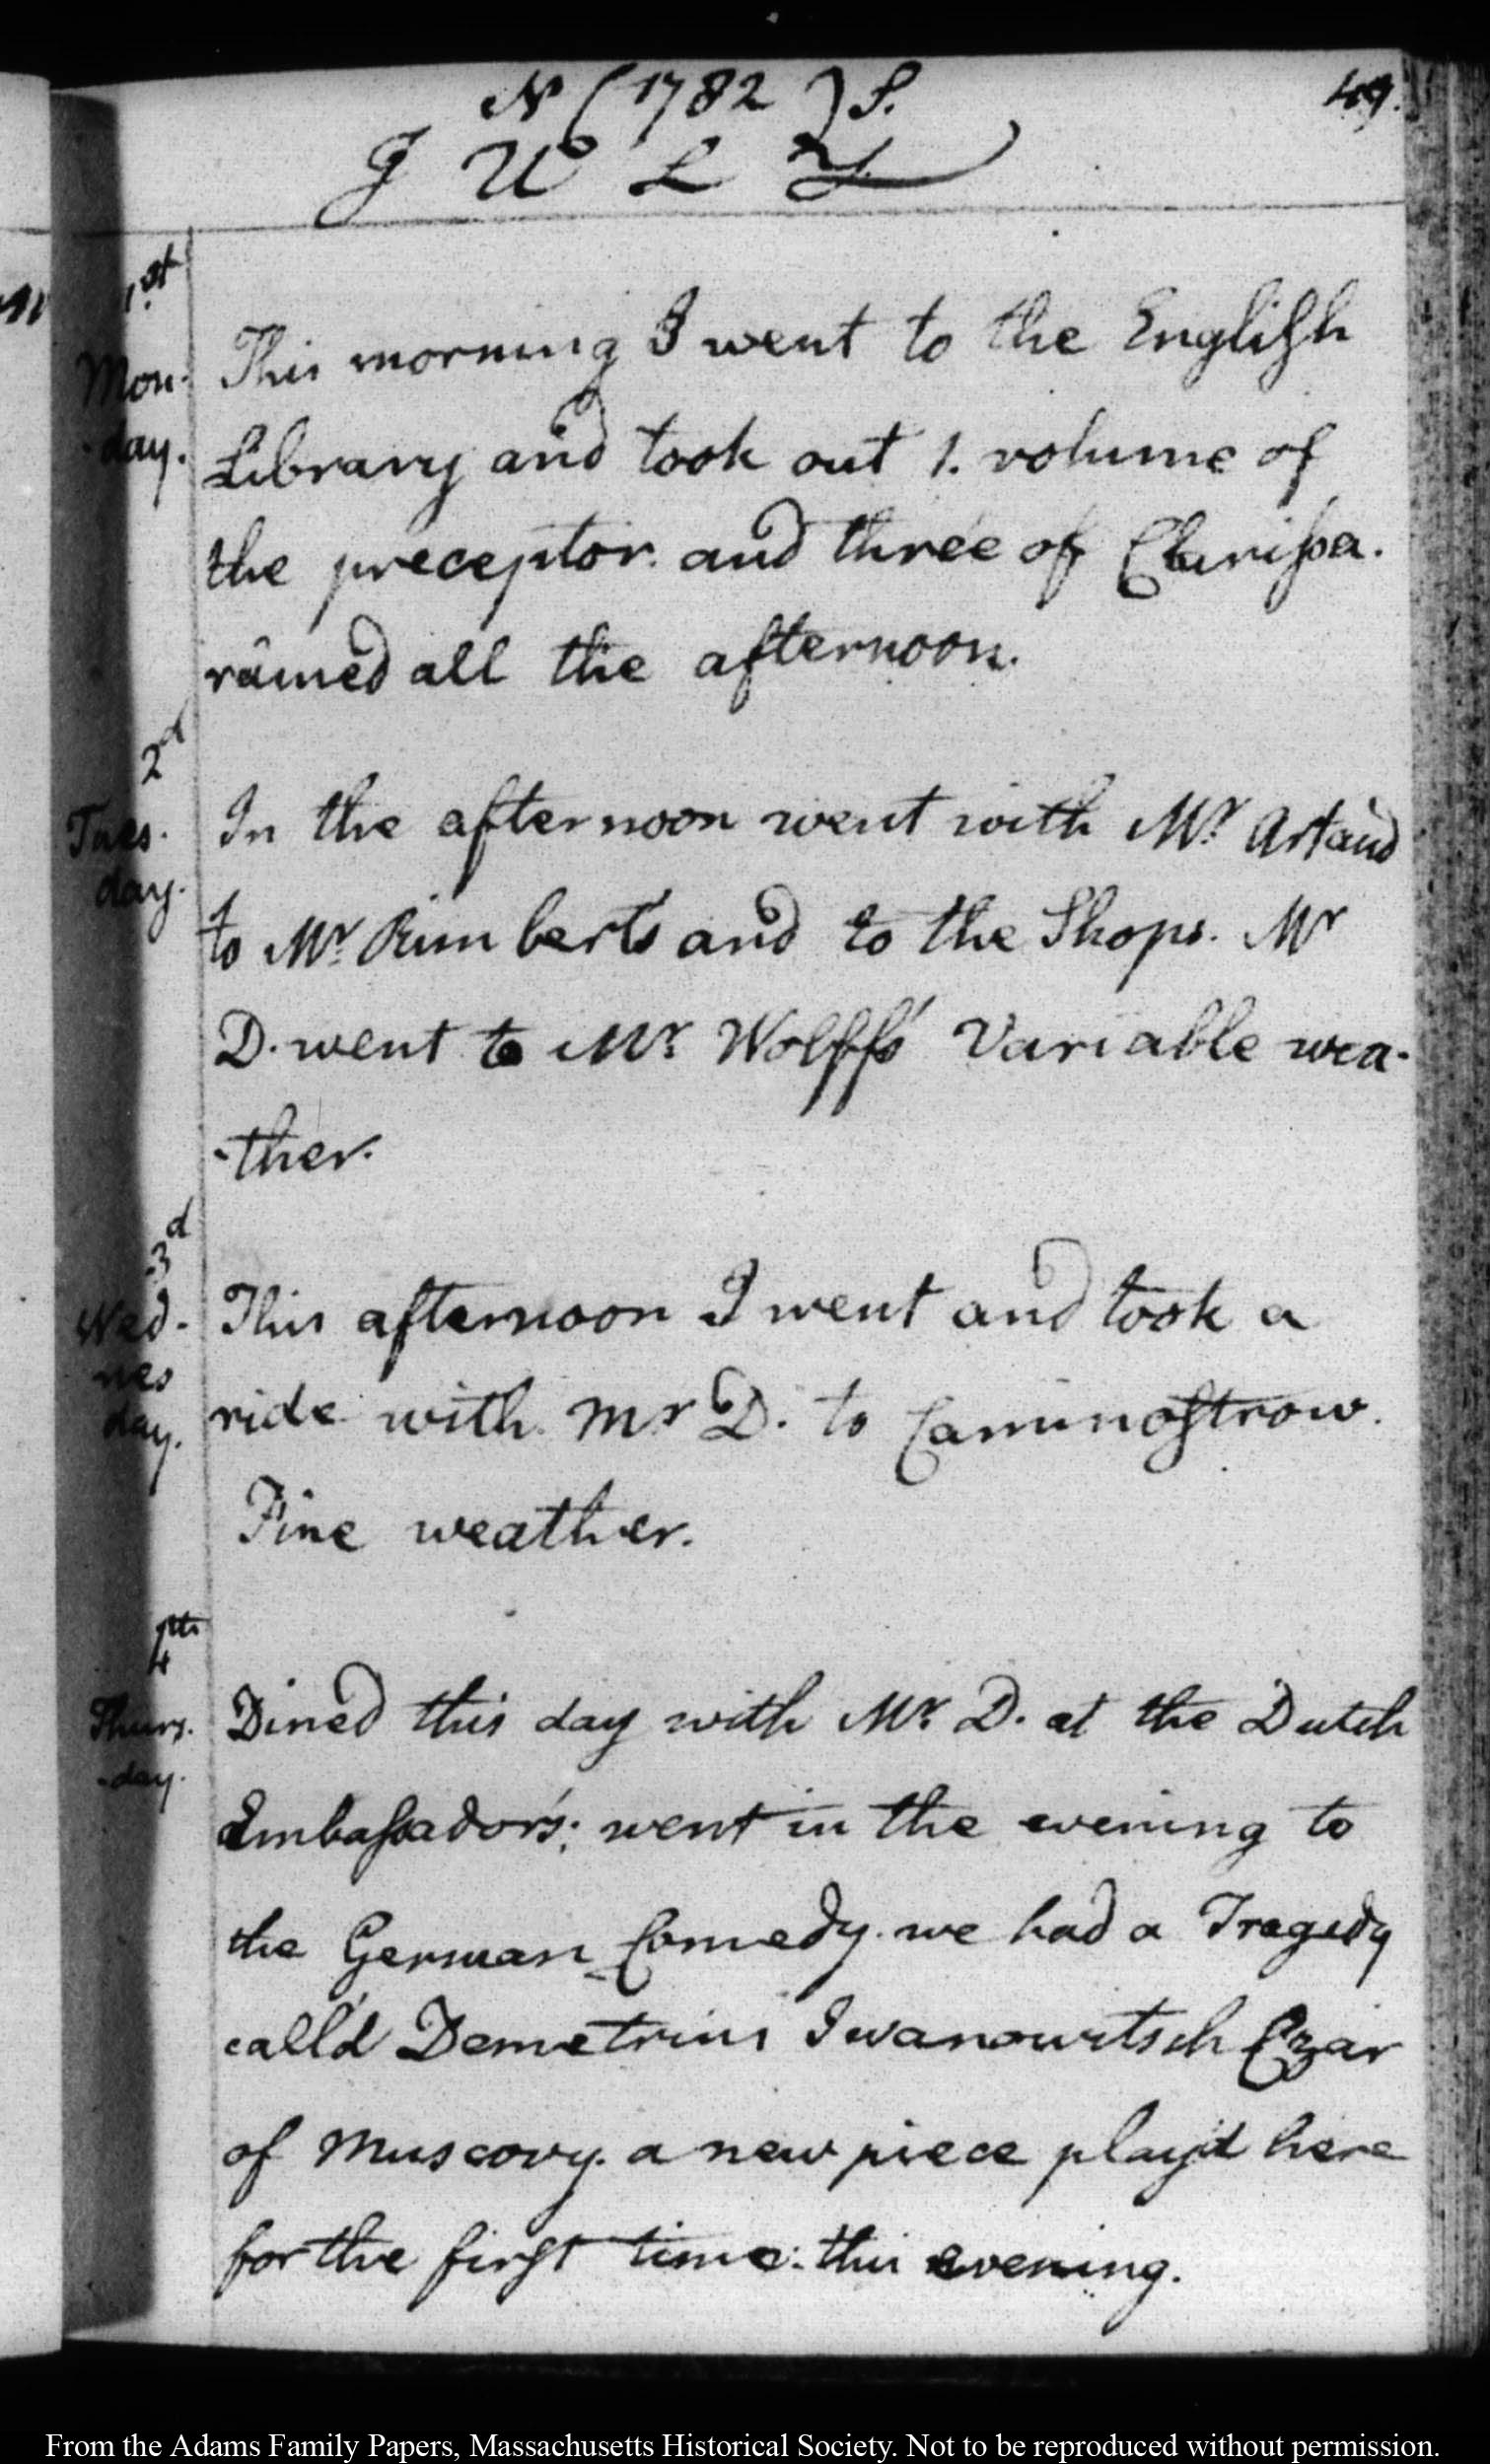 N (1782) S.
49.
JULY
1st
Mon-
-day.
This morning I went to the English
Library and took out 1. volume of
the preceptor. and three of Clarissa.
rained all the afternoon.
2d
Tues-
day.
In the afternoon went with Mr. Artaud
to Mr. Rimberts and to the Shops. Mr
D. went to Mr. Wolffs' Variable wea-
-ther.
3d
Wed-
nes
day.
This afternoon I went and took a
ride with Mr D. to Caminostrow.
Fine weather.
4th
Thurs-
-day.
Dined this day with Mr. D. at the Dutch
Embassador's; went in the evening to
the German Comedy. we had a Tragedy
call'd Demetrius Iwanowitsch Czar
of Muscovy. a new piece play'd here
for the first time: this evening.
From the Adams Family Papers, Massachusetts Historical Society. Not to be reproduced without permission.